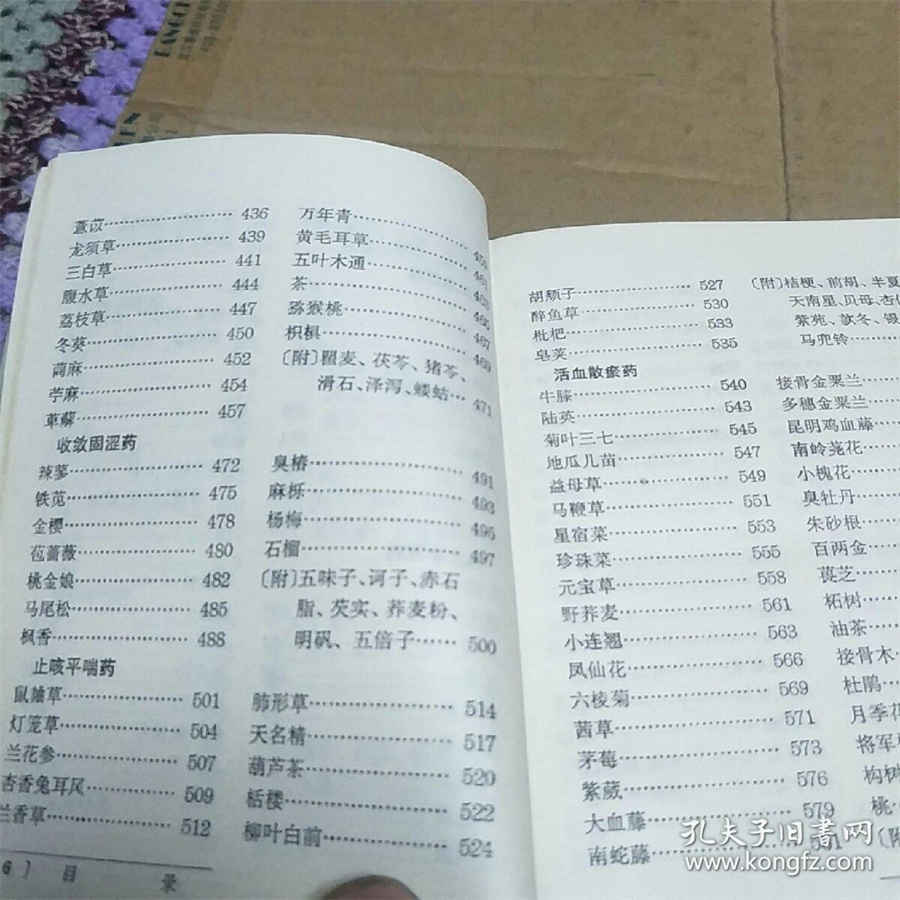 薏苡 436
龙须草 439
三白草 441
腹水草 444
荔枝草 447
冬葵 450
苘麻 452
苧麻 454
萆薢 457
收敛固涩药
辣蓼 472
铁苋 475
金樱 478
苞蔷薇 480
桃金娘 482
马尾松 485
枫香 488
止咳平喘药
鼠䊵草 501
灯笼草 504
兰花参 507
杏香兔耳风 509
兰香草 512
6〕目 录
万年青
黄毛耳草
五叶木通 461
茶
猕猴桃 465
枳椇 467
〔附〕瞿麦、茯苓、猪苓、
滑石、泽泻、蝼蛄 471
臭椿 491
麻栎 493
杨梅 495
石榴 497
〔附〕五味子、诃子、赤石
脂、芡实、荞麦粉、
明矾、五倍子 500
肺形草 514
天名精 517
葫芦茶 520
栝楼 522
柳叶白前 524
胡颓子 527
醉鱼草 530
枇杷 533
皂荚 535
活血散瘀药
牛膝 540
陆英 543
菊叶三七 545
地瓜儿苗 547
益母草 549
马鞭草 551
星宿菜 553
珍珠菜 555
元宝草 558
野荞麦 561
小连翘 563
凤仙花 566
六棱菊 569
茜草 571
茅莓 573
紫葳 576
大血藤 579
南蛇藤 581
〔附〕桔梗、前胡、半夏
天南星、贝母、杏仁
紫菀、款冬、银
马兜铃
接骨金粟兰
多穗金粟兰
昆明鸡血藤
南岭荛花
小槐花
臭牡丹
朱砂根
百两金
莨芝
柘树
油茶
接骨木
杜鹃
月季花
将军
构树
桃
〔附
孔夫子旧书网
www.kongfz.com